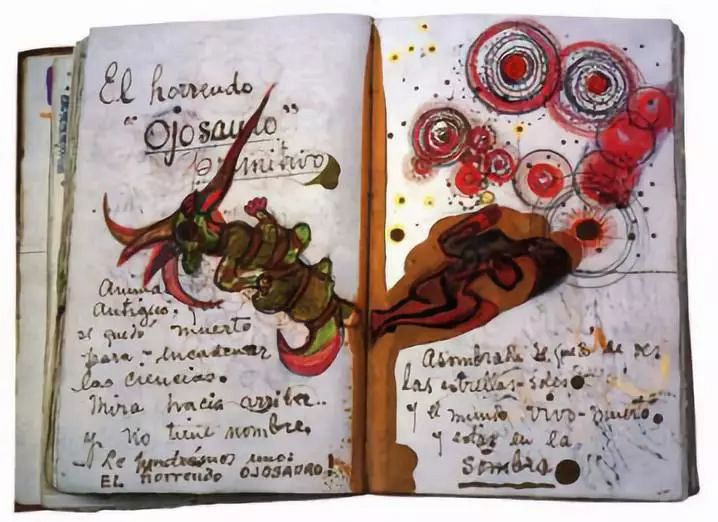 El horrendo
"Ojosauro"
primitivo
Animal
antiguo,
se quedó muerto
para encadenar
las ciencias.
Mira hacia arriba..
y no tiene nombre.
- Le pondremos uno:
EL horrendo OJOSAURO!
Asombrada se quedó de ver
las estrellas-soles
y el mundo vivo-muerto
y estar en la
sombra